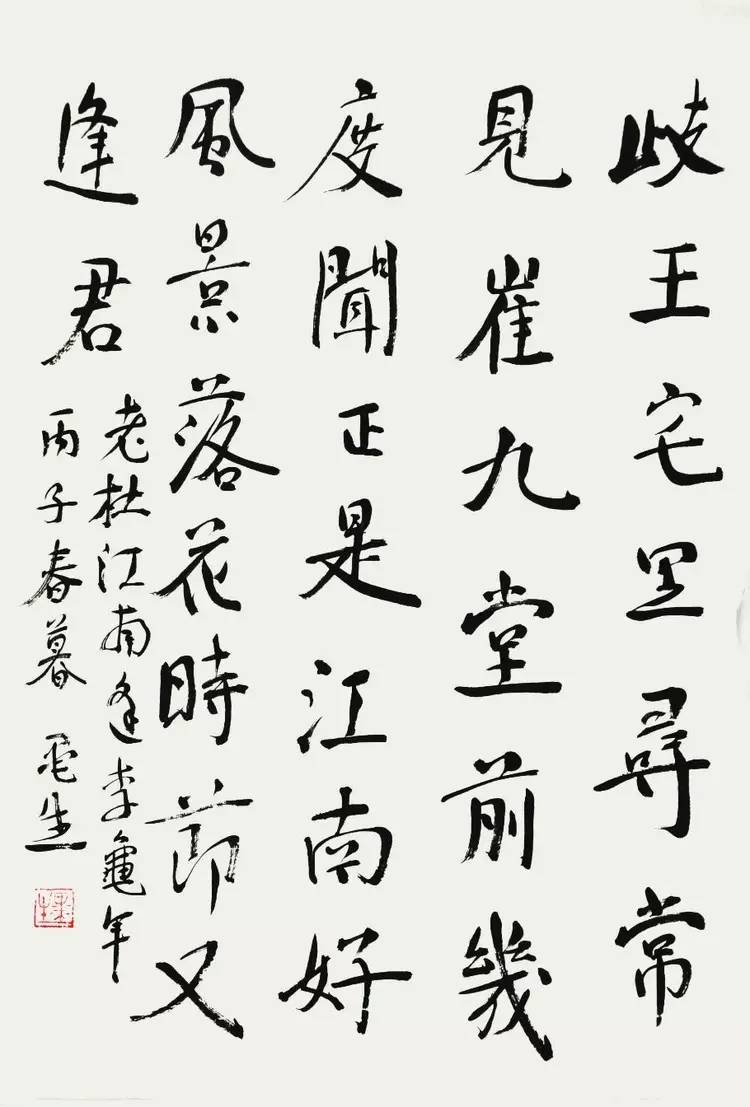 歧王宅里尋常
見崔九堂前幾
度聞正是江南好
風景落花時節又
逢君
老杜江南逢李龜年
丙子春暮 生